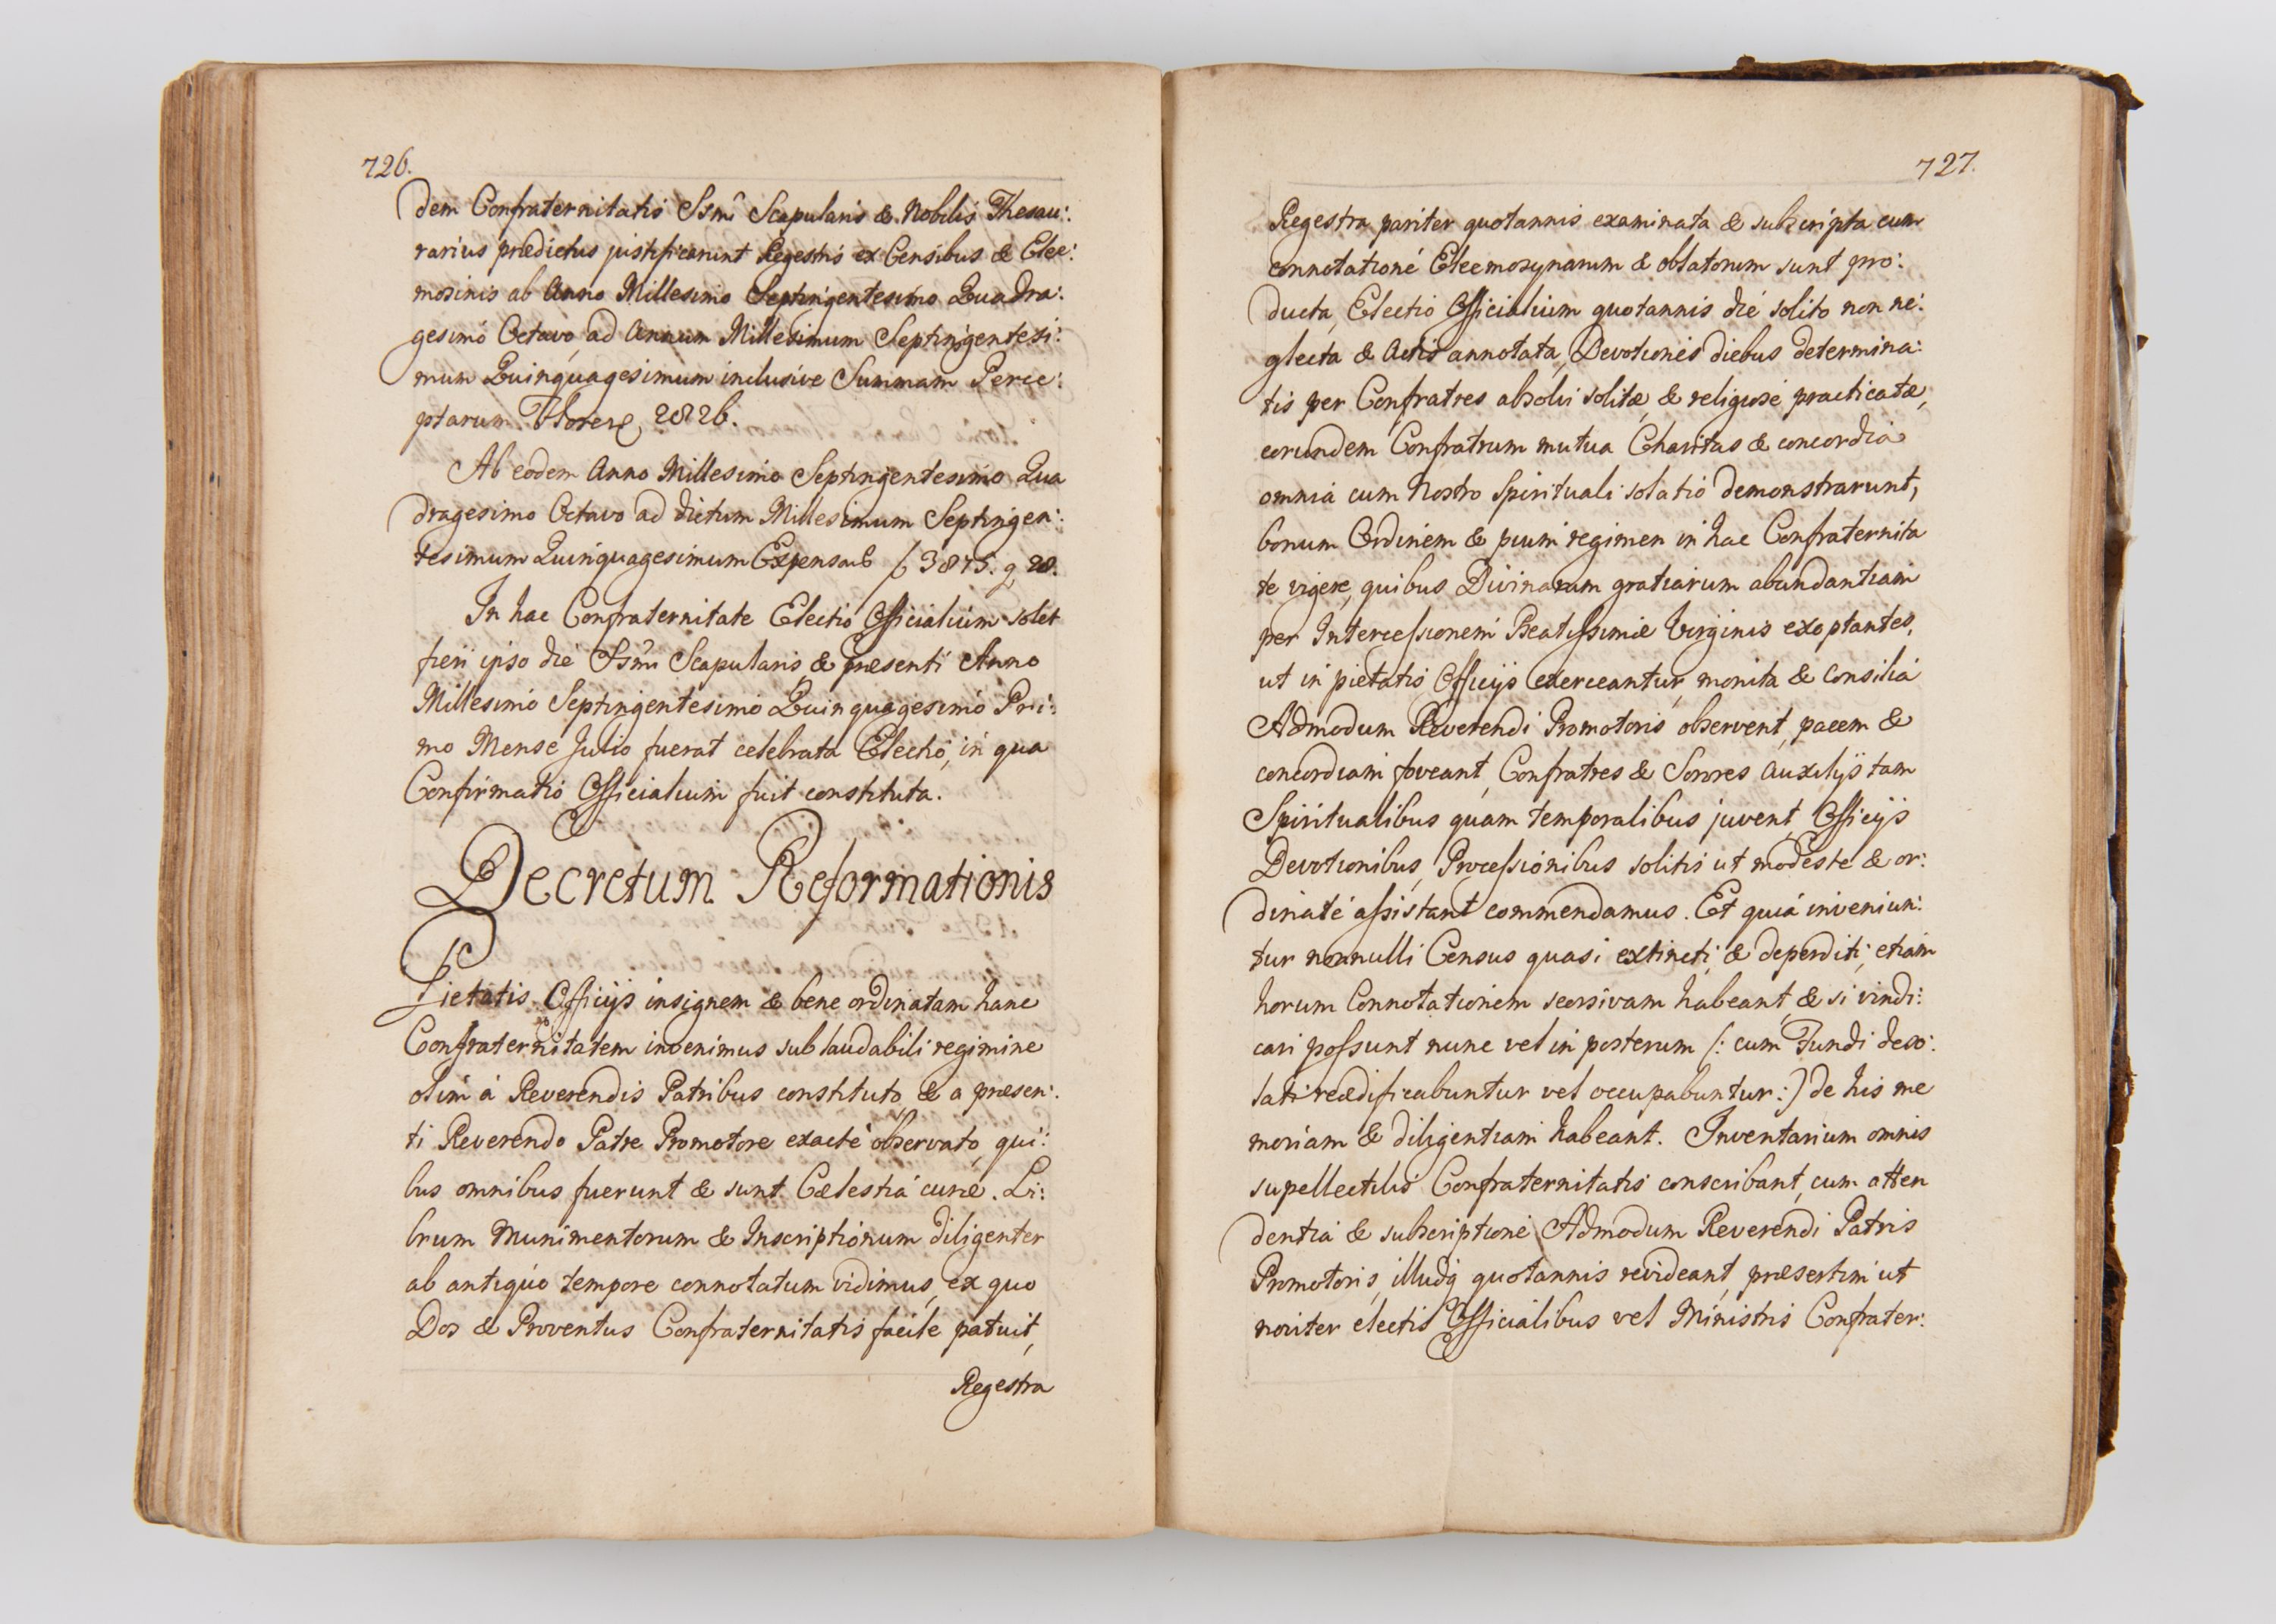 726.
dem Confraternitatis Ssmi Scapularis & Nobilis Thesau:
rarius prædictus justificarunt Regestris ex Censibus & Elee:
mosinis ab Anno Millesimo Septingentesimo Quadra:
gesimo Octavo, ad Annum Millesimum Septingentesi:
mum Quinquagesimum inclusive Summam Perce:
ptarum 2826.
Ab eodem Anno Millesimo Septingentesimo Qua
dragesimo Octavo ad dictum Millesimum Septingen:
tesimum Quinquagesimum 3875. g 28.
In hac Confraternitate Electio Officialium solet
fieri ipso die Ssmi Scapularis, & præsenti Anno
Millesimo Septingentesimo Quinquagesimo Pri:
mo Mense Julio fuerat celebrata Electio, in qua
Confirmatio Officialium fuit constituta.
Decretum Reformationis
Pietatis Officijs insignem & bene ordinatam hanc
Confraternitatem invenimus sub laudabili regimine
olim à Reverendis Patribus constituto, & a præsen:
ti Reverendo Patre Promotore exactè observato, qui:
bus omnibus fuerunt & sunt Cælestia curæ. Li:
brum Munimentorum & Inscriptionum diligenter
ab antiquo tempore connotatum vidimus, ex quo
Dos & Proventus Confraternitatis facile patuit,
Regestra
727.
Regestra pariter quotannis examinata & subscripta cum
connotatione Eleemosynarum & oblatorum sunt pro:
ducta, Electio Officialium quotannis die solito non ne:
glecta & Actis annotata, Devotiones diebus determina:
tis per Confratres absolvi solitæ, & religiosè practicatæ,
eorundem Confratrum mutua Charitas & concordia
omnia cum Nostro Spirituali solatio demonstrarunt,
bonum Ordinem & pium regimen in hac Confraternita
te vigere, quibus Divinarum gratiarum abundantiam
per Intercessionem Beatissimæ Virginis exoptantes,
ut in pietatis Officijs exerceantur, monita & Consilia
Admodum Reverendi Promotoris observent, pacem &
concordiam foveant, Confratres & Sorores Auxilijs tam
Spiritualibus quam temporalibus juvent, Officijs
Devotionibus, Processionibus solitis ut modeste & or:
dinatè assistant commendamus. Et quia inveniun:
tur nonnulli Census quasi extincti, & deperditi, etiam
horum Connotationem seorsivam habeant, & si vindi:
cari possunt nunc vel in posterum /: cum Fundi deso:
lati reædificabuntur vel occupabuntur :/ de his me
moriam & diligentiam habeant. Inventarium omnis
supellectilis Confraternitatis conscribant, cum atten
dentia & subscriptione Admodum Reverendi Patris
Promotoris, illudq quotannis revideant, præsertim ut
noviter electis Officialibus vel Ministris Confrater: